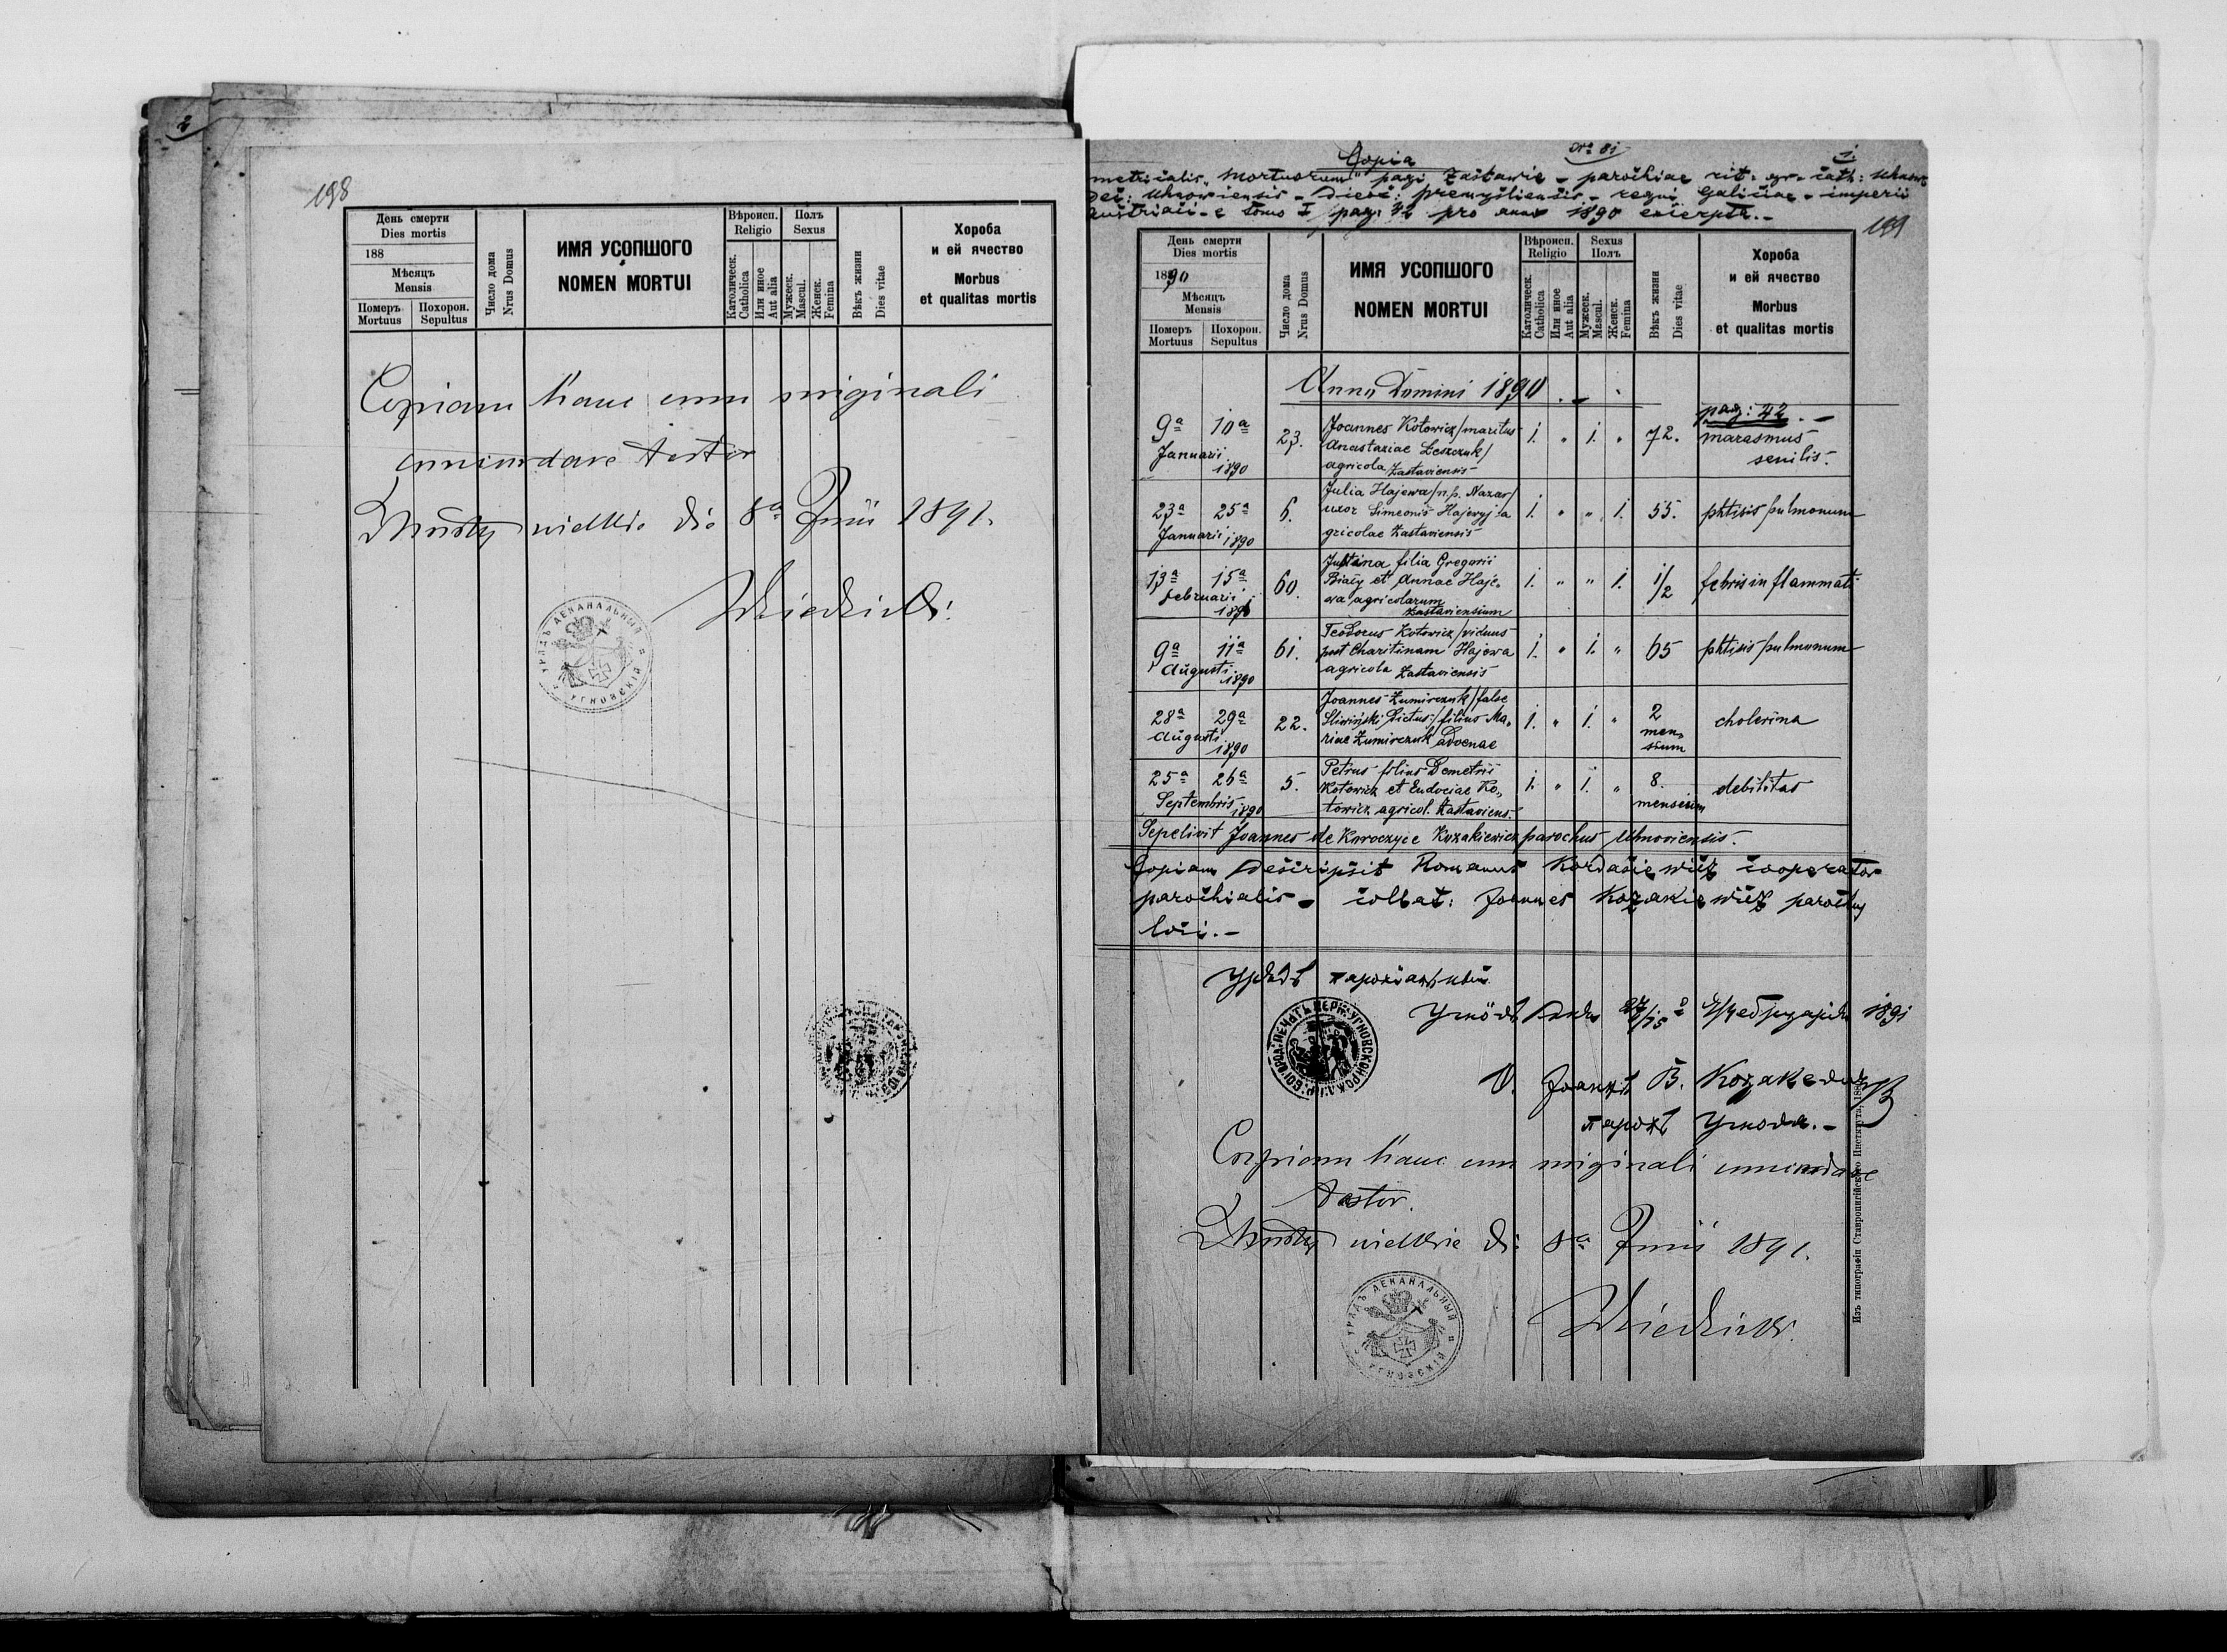 2
198
День смерти
Dies mortis
188
Мѣсяцъ
Mensis
Померъ
Mortuus
Похорон.
Sepultus
Число дома
Nrus Domus
ИМЯ УСОПШОГО
NOMEN MORTUI
Вѣроисп.
Religio
Католическ.
Catholica
Или иное
Aut alia
Полъ
Sexus
Мужеск.
Mascul.
Женск.
Femina
Вѣкъ жизни
Dies vitae
Хороба
и ей ячество
Morbus
et qualitas mortis
Copiam hanc cum originali
concordare testor
wielkie die 8ª Junii 1891.
УРЯДЪ ДЕКАНАЛЬНЫЙ УГНОВСКІЙ
Copia
Nº 81
1.
metricalis "Mortuorum" pagi Zastawie - parochiae rit. gr. cath: Uhnow
Dec: Uhnoviensis - Dioec: premysliensis - regni Galiciae - imperii
Austriaci - e tomo I pag: 42 pro anno 1890 excerpta. -
199
День смерти
Dies mortis
1890
Мѣсяцъ
Mensis
Померъ
Mortuus
Похорон.
Sepultus
Число дома
Nrus Domus
ИМЯ УСОПШОГО
NOMEN MORTUI
Вѣроисп.
Religio
Католическ.
Catholica
Или иное
Aut alia
Sexus
Полъ
Мужеск.
Mascul.
Женск.
Femina
Вѣкъ жизни
Dies vitae
Хороба
и ей ячество
Morbus
et qualitas mortis
Anno Domini 1890
pag: 42. -
9ª 10ª Januarii 1890 23. Joannes Kotowicz /maritus
Anastasiae Leszczuk/
agricola Zastaviensis 1. " 1. " 72. marasmus
senilis.
23ª 25ª Januarii 1890 6. Julia Hajewa /n.p. Nazar/
uxor Simeonis Hajewyj a
gricolae Zastaviensis 1. " " 1. 55. phtisis pulmonum
13ª 15ª Februarii 1890 60. Justina filia Gregorii
Biały et Annae Haje-
wa agricolarum
Zastaviensium 1. " " 1. 1/2 febris inflammat:
9ª 11ª Augusti 1890 61. Teodorus Kotowicz /viduus
post Charitinam Hajewa
agricola Zastaviensis 1. " 1. " 65 phtisis pulmonum
28ª 29ª Augusti 1890 22. Joannes Żumirczuk /false
Sliwiński dictus/ filius Ma-
riae Żumirczuk advenae 1. " 1. " 2
men-
sium cholerina
25ª 26ª Septembris 1890 5. Petrus filius Demetrii
Kotowicz et Eudociae Ko-
towicz agricol. Zastaviens. 1. " 1. " 8.
mensium debilitas
Sepelivit Joannes de Koroczyce Kozakiewicz parochus Uhnoviensis.
Copiam descripsit Romanus Kordasiewicz cooperator
parochialis - collat: Joannes Kozakiewicz parochus
loci. -
Урядъ парохіальный
Угновъ дня 27/15 Фебруарія 1891
О. Іоаннъ В. Козакевичъ
парохъ Угнова. -
Copiam hanc cum originali concordare
testor.
wielkie die 8ª Junii 1891.
УРЯДЪ ДЕКАНАЛЬНЫЙ УГНОВСКІЙ
Изъ типографіи Ставропигійского Института, 188